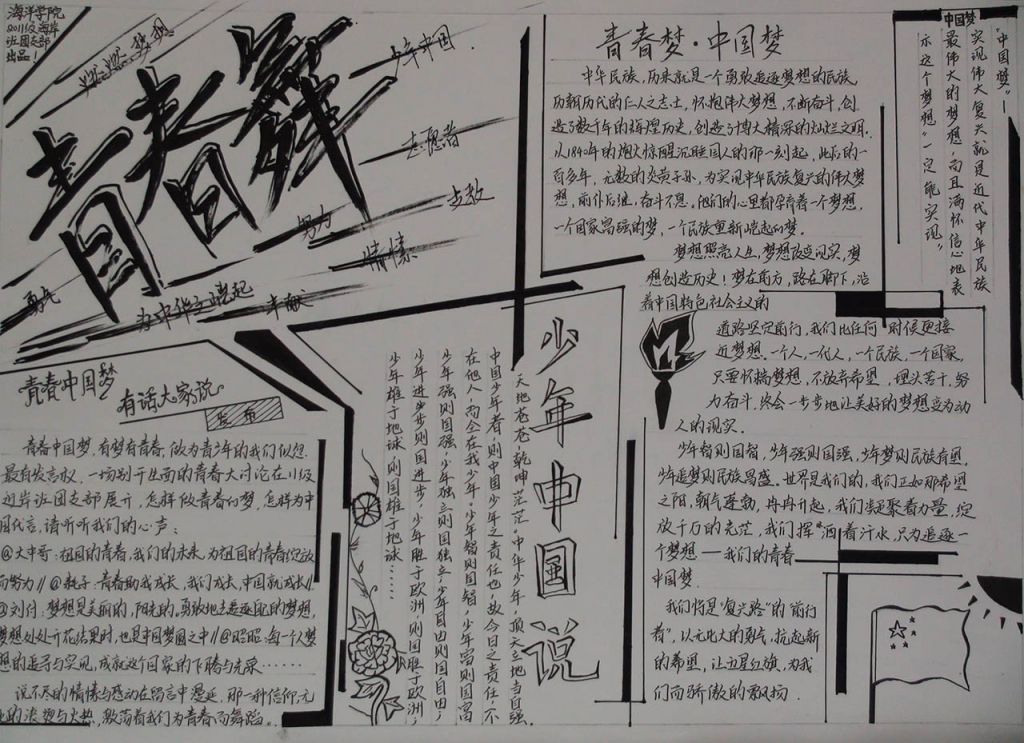 海洋学院
2011级海岸
班团支部
出品！
燃燃梦想
青春舞
少年中国
志愿者
努力
情愫
为中华之崛起
奉献
勇气
青春中国梦
有话大家说
发布
青春中国梦,有梦有青春,做为青少年的我们似您
最有发言权,一场别开生面的青春大讨论在11级
海岸班团支部展开,怎样做青春的梦,怎样为中
国代言,请听听我们的心声:
@大中哥:祖国的青春,我们的未来,为祖国的青春绽放
而努力//@耗子:青春助我成长,我们成长,中国就成长//
@刘付:梦想是美丽的,阳光的,勇敢地去追逐你的梦想,
梦想处处开花结果时,也是中国梦圆之中//@昭昭:每一个人梦
想的追寻与实现,成就这个国家的飞腾与光荣……
说不尽的情愫与感动在留言中漫延,那一种信仰,无
的浪塑与火热,激荡着我们为青春而舞蹈。
少年中国说
天地苍苍,乾坤茫茫,中华少年,顶天立地当自强.
中国少年者,则中国少年之责任也,故今日之责任,不
在他人,而全在我少年,少年智则国智,少年富则国富
少年强则国强,少年独立则国独立,少年自由则国自由,
少年进步则国进步,少年胜于欧洲,则国胜于欧洲,
少年雄于地球,则国雄于地球……
青春梦·中国梦
中华民族,历来就是一个勇敢追逐梦想的民族
历朝历代的仁人之志士,怀抱伟大梦想,不断奋斗,创
造了数千年的辉煌历史,创造了博大精深的灿烂文明.
从1840年的炮火惊醒沉睡国人的那一刻起,此后的一
百多年,无数的炎黄子孙,为实现中华民族复兴的伟大梦
想,前仆后继,奋斗不息。他们的心里都孕育着一个梦想,
一个国家富强的梦,一个民族重新崛起的梦。
梦想照亮人生,梦想改变现实,梦
想创造历史!梦在前方,路在脚下,沿
着中国特色社会主义的
道路坚定前行,我们比任何时候更接
近梦想.一个人,一代人,一个民族,一个国家,
只要怀揣梦想,不放弃希望,埋头苦干,努
力奋斗,终会一步步地让美好的梦想变为动
人的现实.
少年智则国智,少年强则国强,少年梦则民族有望,
少年追梦则民族昌盛。世界是我们的,我们正如那希望
之阳,朝气蓬勃,冉冉升起,我们凝聚着力量,绽
放千万的光茫,我们挥"洒"着汗水,只为追逐一
个梦想——我们的青春
中国梦.
我们将是"复兴路"的"前行
者",以无比大的勇气,抗起新
的希望,让五星红旗,为我
们而骄傲的飘扬.
中国梦
"中国梦"—
实现伟大复兴就是近代中华民族
最伟大的梦想,而且满怀信心地表
示这个梦想"一定能实现"